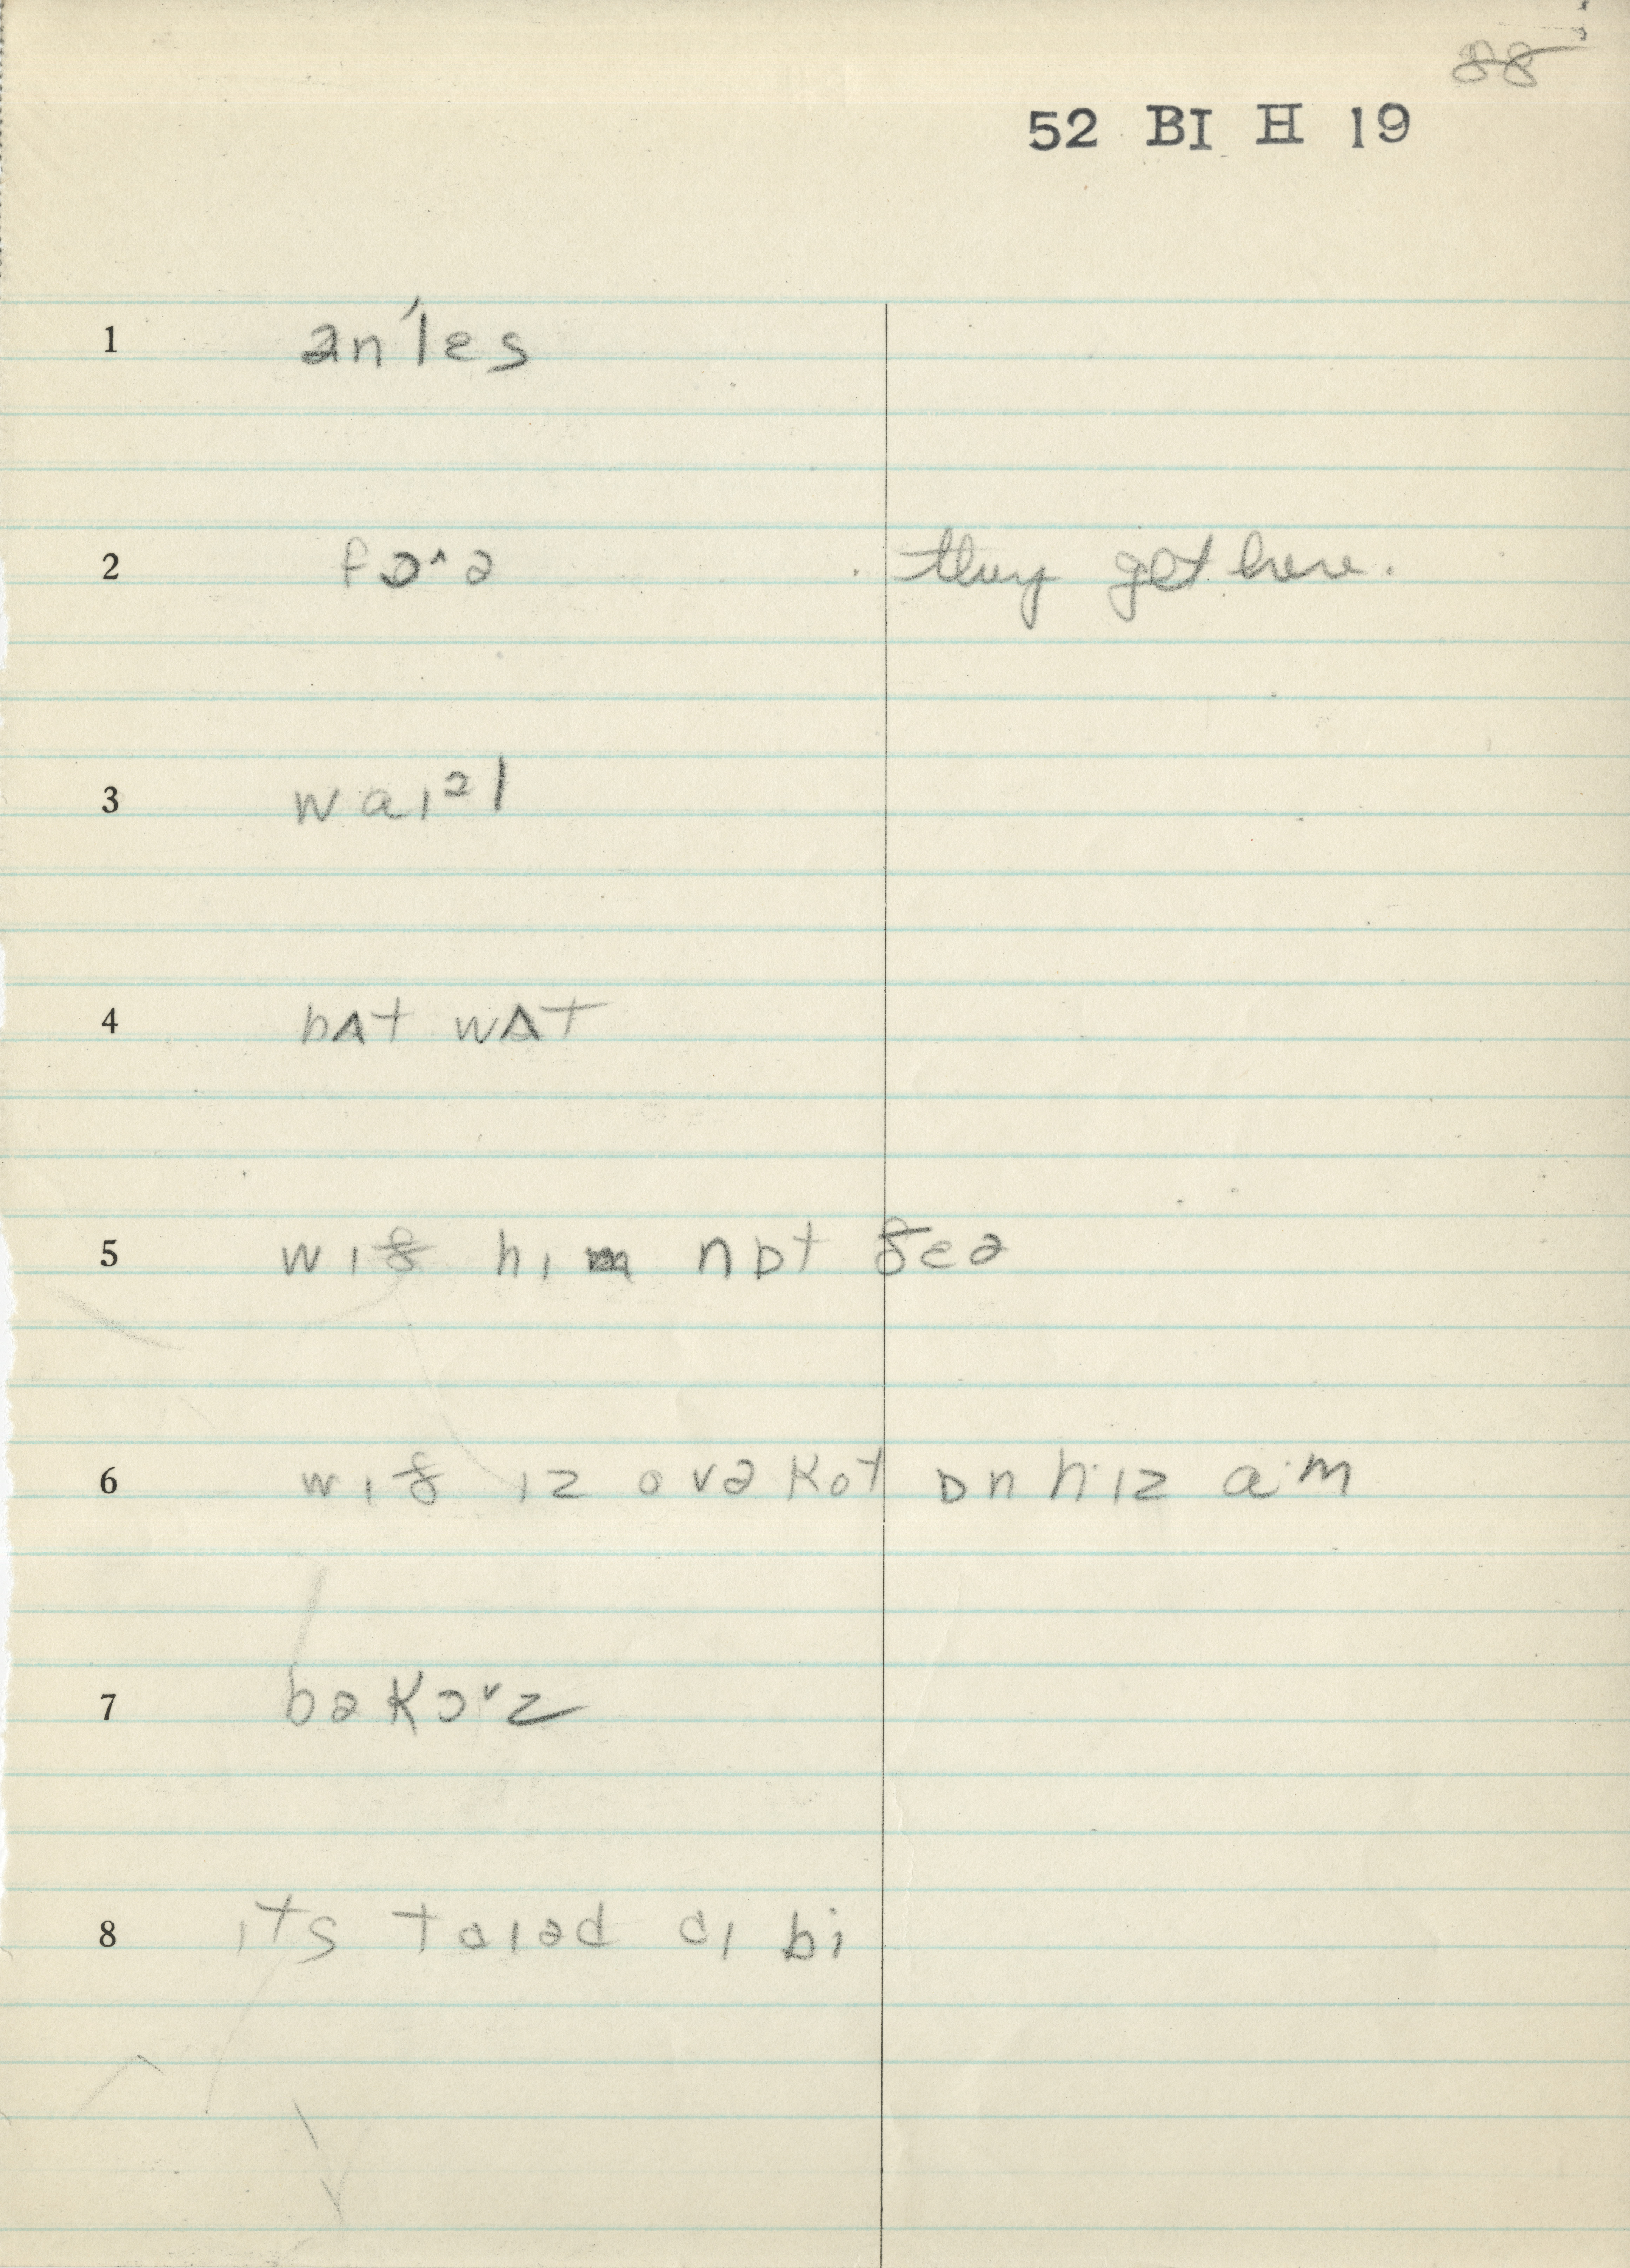 88
52 BI H 19
1 ən'lɛs
2 fɔ˄ə they get here.
3 waɪᵊl
4 bʌt wʌt
5 wɪð hɪm nɒt ðeə
6 wɪð ɪz ovəkot ɒn hɪz a·m
7 bəkɔᵛz
8 ɪts taɪəd aɪ bi